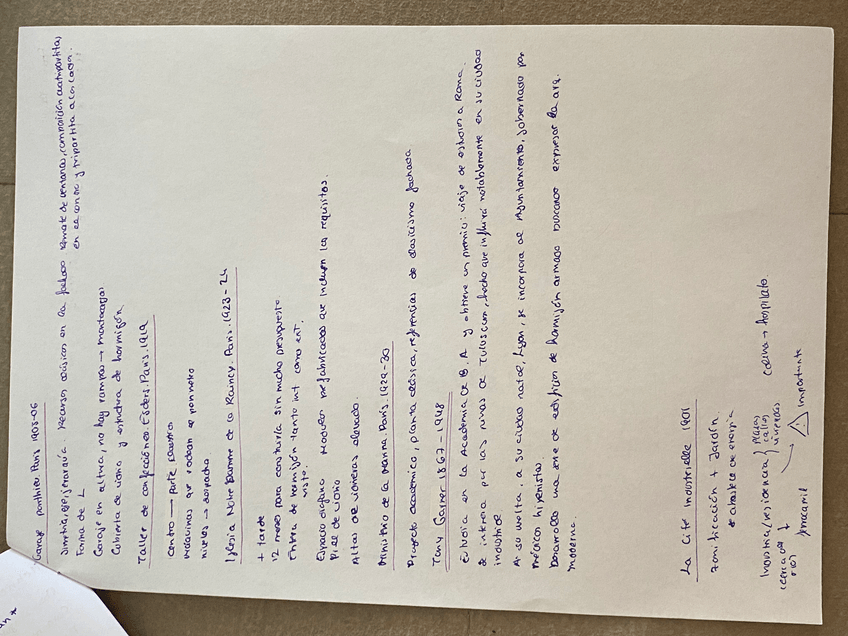 Garaje ponthieu. París 1905-06
Simetría, epigrafía. Recursos clásicos en la fachada remate de ventanas, composición cuatripartita
en el and y tripartita a los lados.
Forma de L
Garaje en altura, no hay rampas → montacargas
Cubierta de vidrio y estructura de hormigón
Taller de confecciones. Esders. París. 1919
centro → parte
máquinas que rodean el perímetro
niveles → despacho
Iglesia Notre Damme de la Raincy. París. 1923-24
+ tarde
12 meses para construirla sin mucho presupuesto
Entera de hormigón tanto int como ext.
visto
Espacio diáfano Módulos prefabricados que incluyen los requisitos.
Piel de vidrio
Altar de vidrieras elevado.
Ministerio de la Marina. París. 1929-30
Proyecto académico, planta clásica, referencias de clasicismo fachada
Tony Garnier 1867-1948
Estudia en la Academia de B.A y obtiene un premio: viaje de estudios a Roma.
Se interesa por las ruinas de Tulusculum, hecho que influirá notablemente en su ciudad
industrial
A su vuelta, a su ciudad natal, Lyon, se incorpora al Ayuntamiento, gobernado por
médicos higienistas.
Desarrolla una serie de edificios de hormigón armado buscando expresar la arq.
moderna.
La Cité Industrielle 1901
Zonificación + Jardín.
* catable de energía
Industria/residencia } plazas
calles
viviendas
colina → hospitales
cerca del ↓
río
ferrocarril
⚠ importante